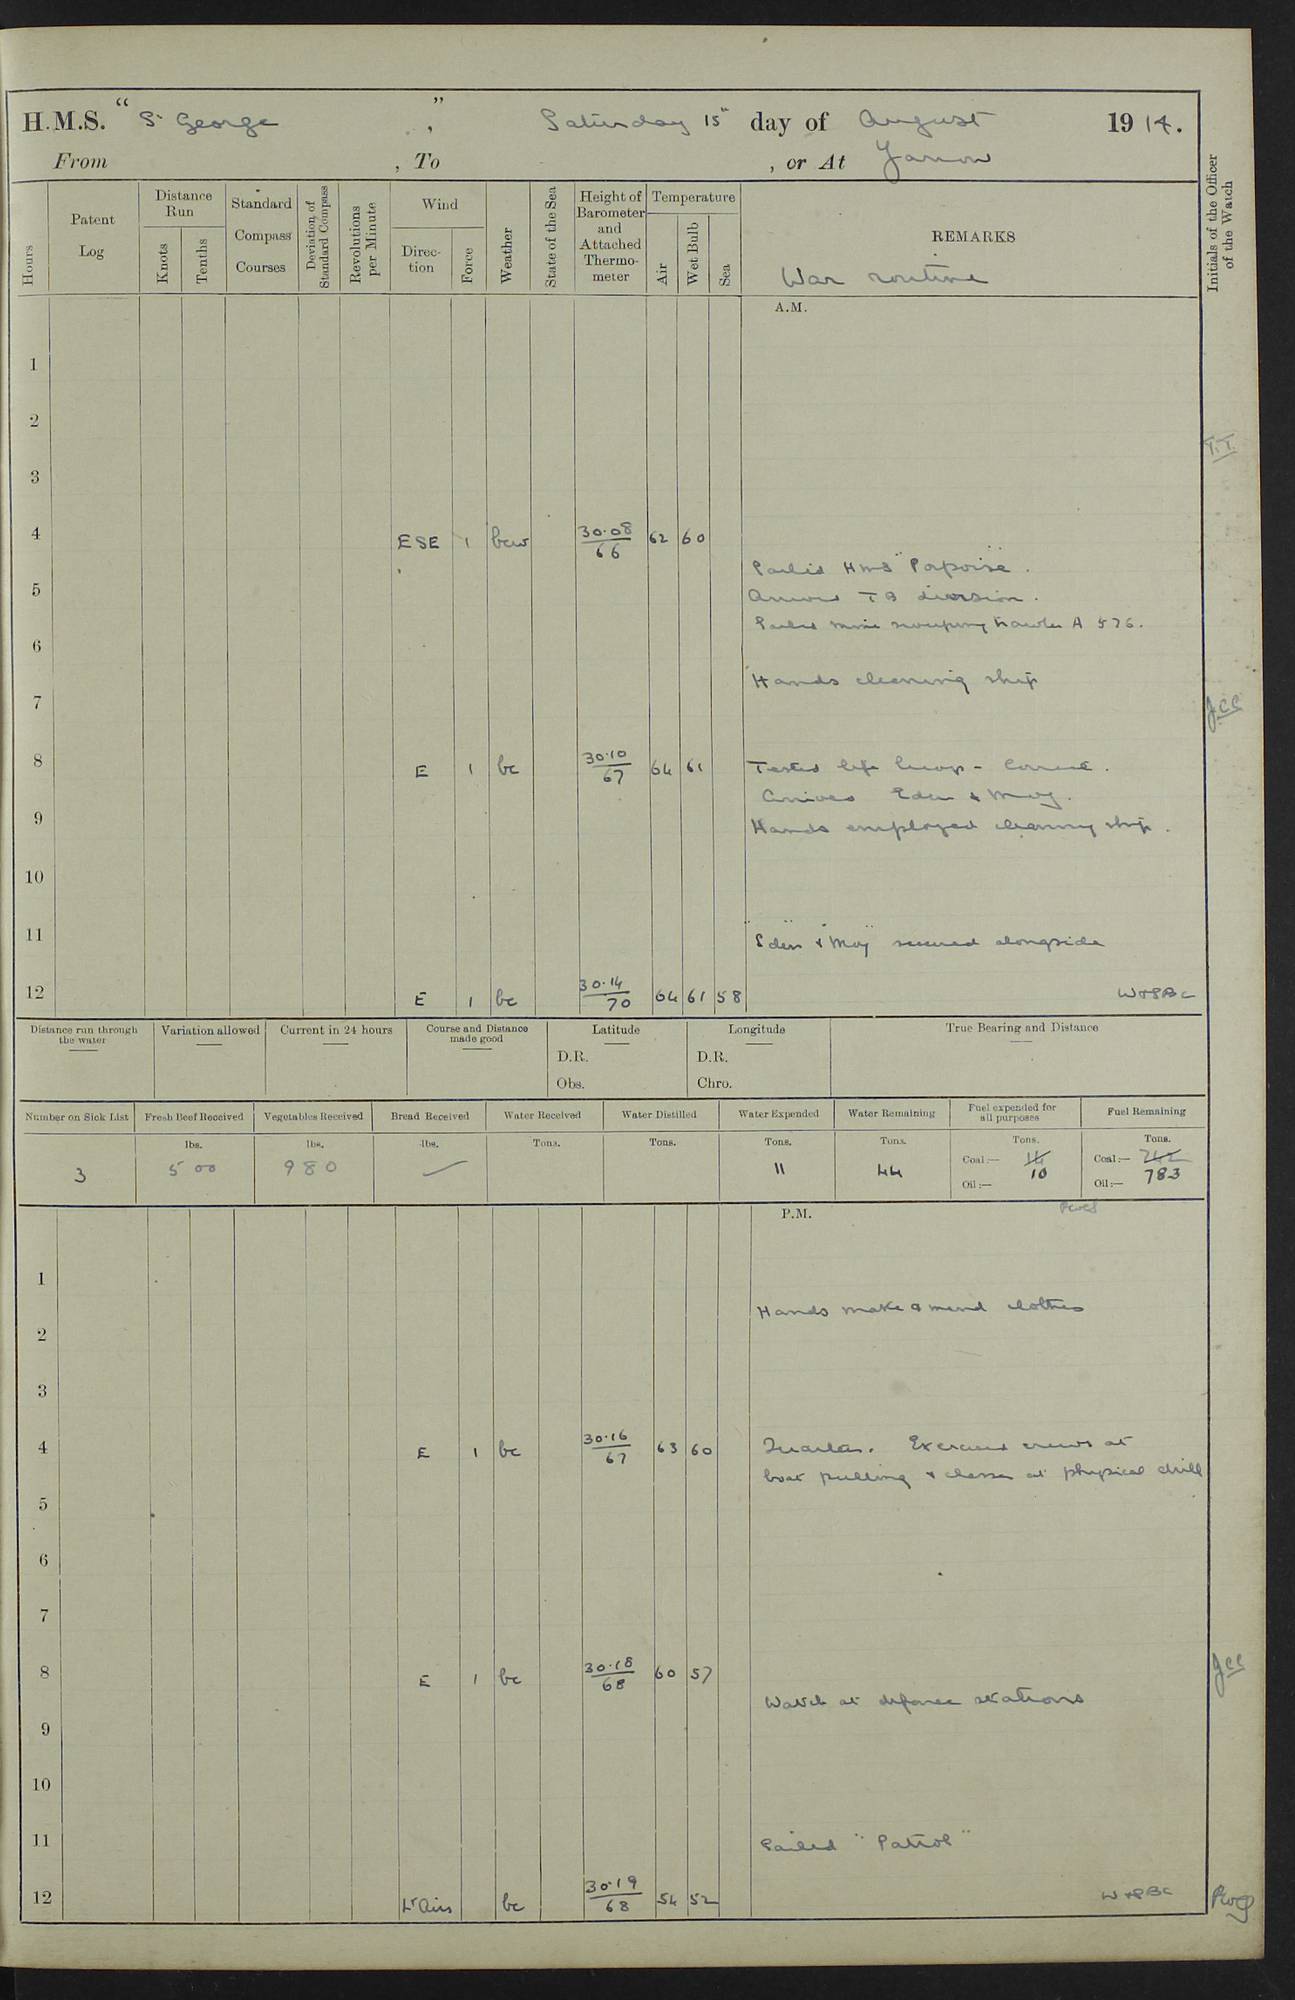 H.M.S. "St George", Saturday 15th day of August 1914.
From , To , or At Jarrow
Hours
Patent Log
Distance Run
Knots
Tenths
Standard Compass Courses
Deviation of Standard Compass
Revolutions per Minute
Wind
Direction
Force
Weather
State of the Sea
Height of Barometer and Attached Thermometer
Temperature
Air
Wet Bulb
Sea
REMARKS
War routine
Initials of the Officer of the Watch
A.M.
1
2
T.T.
3
4 ESE 1 bcw 30.08/66 62 60
Sailed HMS "Porpoise".
5 Arrived TB division.
Sailed mine sweeping trawler A 576.
6
Hands cleaning ship
7 JCC
8 E 1 bc 30.10/67 64 61 Tested life buoys - Correct.
Arrived Eden & Moy.
9 Hands employed cleaning ship.
10
11 "Eden" & "Moy" secured alongside
12 E 1 bc 30.14/70 64 61 58 W&SBC
Distance run through the water
Variation allowed
Current in 24 hours
Course and Distance made good
Latitude
D.R.
Obs.
Longitude
D.R.
Chro.
True Bearing and Distance
Number on Sick List
3
Fresh Beef Received
lbs.
500
Vegetables Received
lbs.
980
Bread Received
lbs.
—
Water Received
Tons.
Water Distilled
Tons.
Water Expended
Tons.
11
Water Remaining
Tons.
44
Fuel expended for all purposes
Tons.
Coal:— 14 10
Oil:—
Fuel Remaining
Tons.
Coal:— 783
Oil:—
P.M.
1
Hands make & mend clothes
2
3
4 E 1 bc 30.16/67 63 60 Quarters. Exercised crews at
boat pulling & classes at physical drill
5
6
7
8 E 1 bc 30.18/68 60 57 JCC
Watch at defence stations
9
10
11 Sailed "Patrol"
12 Lt Airs bc 30.19/68 54 52 W&SBC